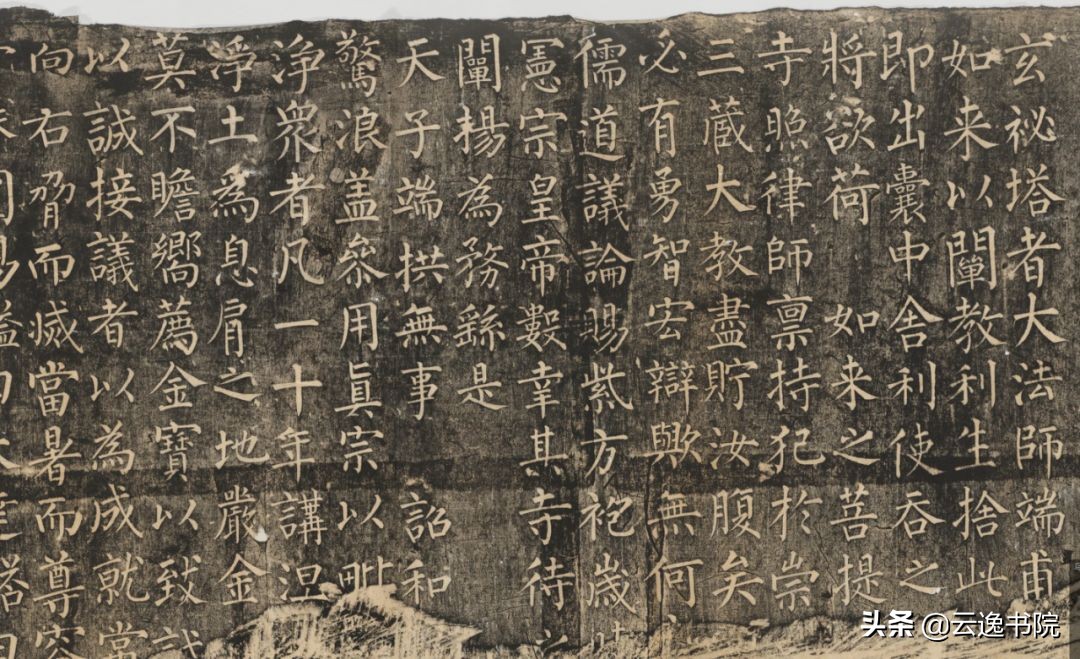 玄秘塔者大法師端甫
如来以闡教利生捨此
即出囊中舍利使吞之
將欲荷 如来之菩提
寺照律師禀持犯於崇
三蔵大教盡貯汝腹矣
必有勇智宏辯歟無何
儒道議論賜紫方袍歲
憲宗皇帝數幸其寺待
闡揚為務繇是
天子端拱無事 詔和
驚浪盖叅用真宗以毗
浄衆者凡一十年講涅
浄土為息肩之地嚴金
莫不瞻嚮薦金寶以致誠
以誠接議者以為成就常
向右脅而滅當暑而尊容
头条 @云逸书院